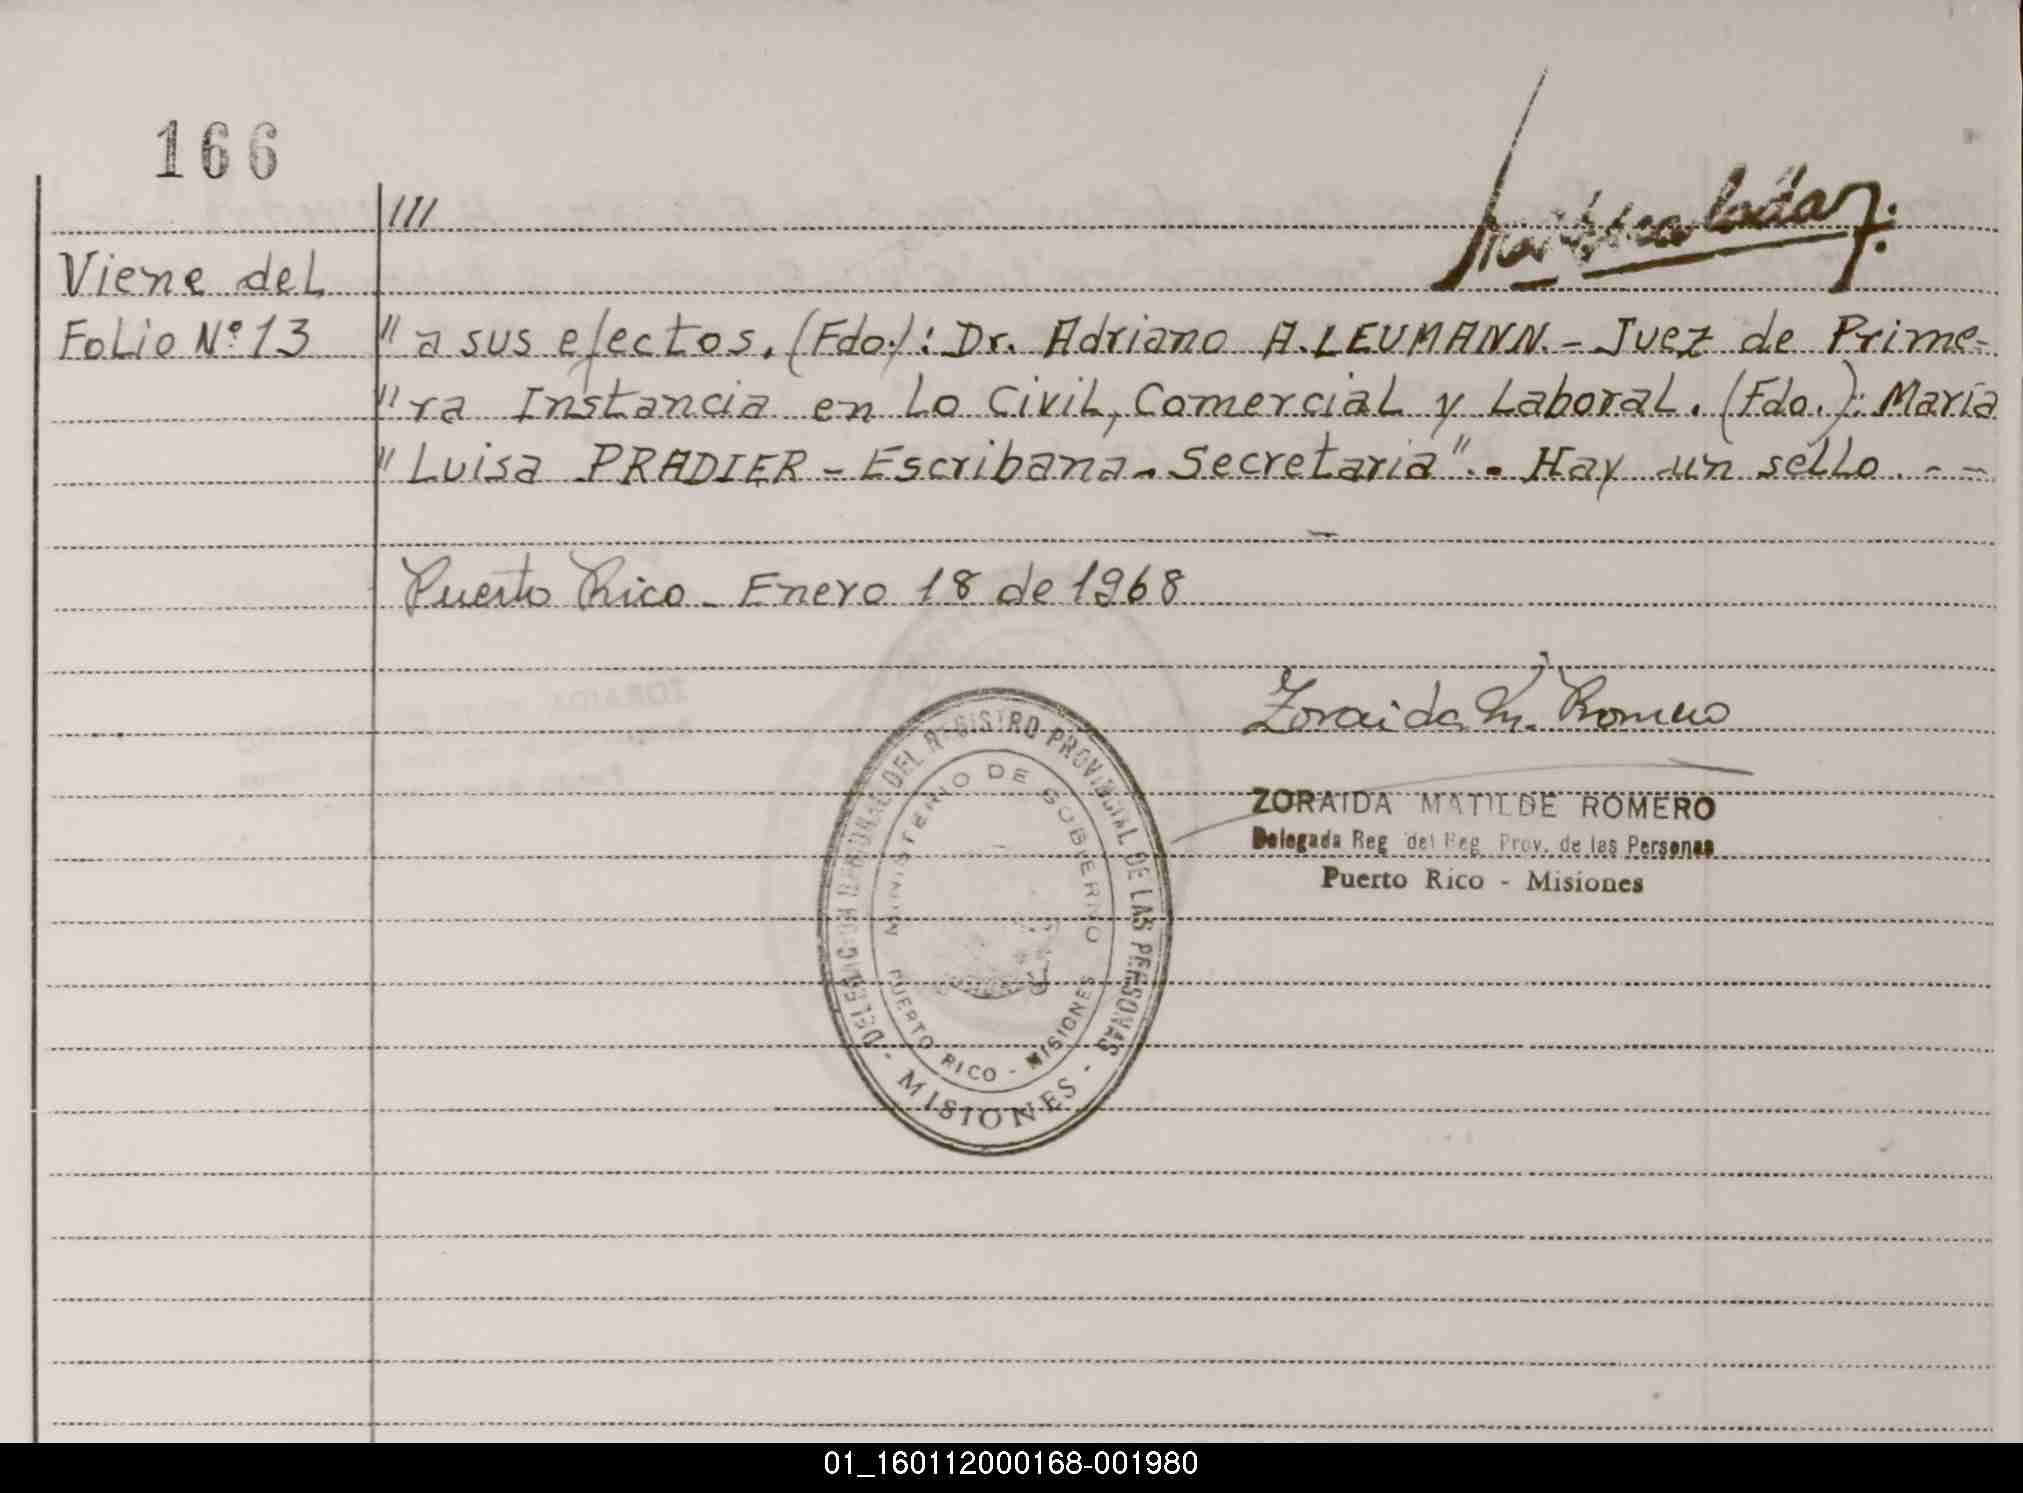 166
///
Viene del
Folio Nº 13
" a sus efectos. (Fdo.): Dr. Adriano A. LEUMANN. - Juez de Prime-
" ra Instancia en Lo Civil, Comercial y Laboral. (Fdo.): María
" Luisa PRADIER - Escribana - Secretaria". - Hay un sello. - -
Puerto Rico - Enero 18 de 1968
Zoraida M. Romero
ZORAIDA MATILDE ROMERO
Delegada Reg del Reg. Prov. de las Personas
Puerto Rico - Misiones
DELEGACION REGIONAL DEL REGISTRO PROVINCIAL DE LAS PERSONAS
- MISIONES -
MINISTERIO DE GOBIERNO
PUERTO RICO - MISIONES
01_160112000168-001980